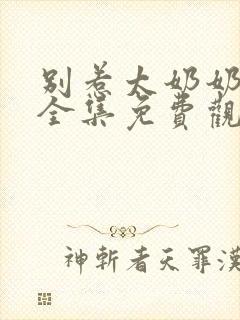 别惹大奶奶
全集免費觀
神斬者天罪漢